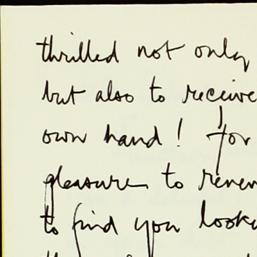 thrilled not only
but also to receive
own hand! for
pleasure to renew
to find you